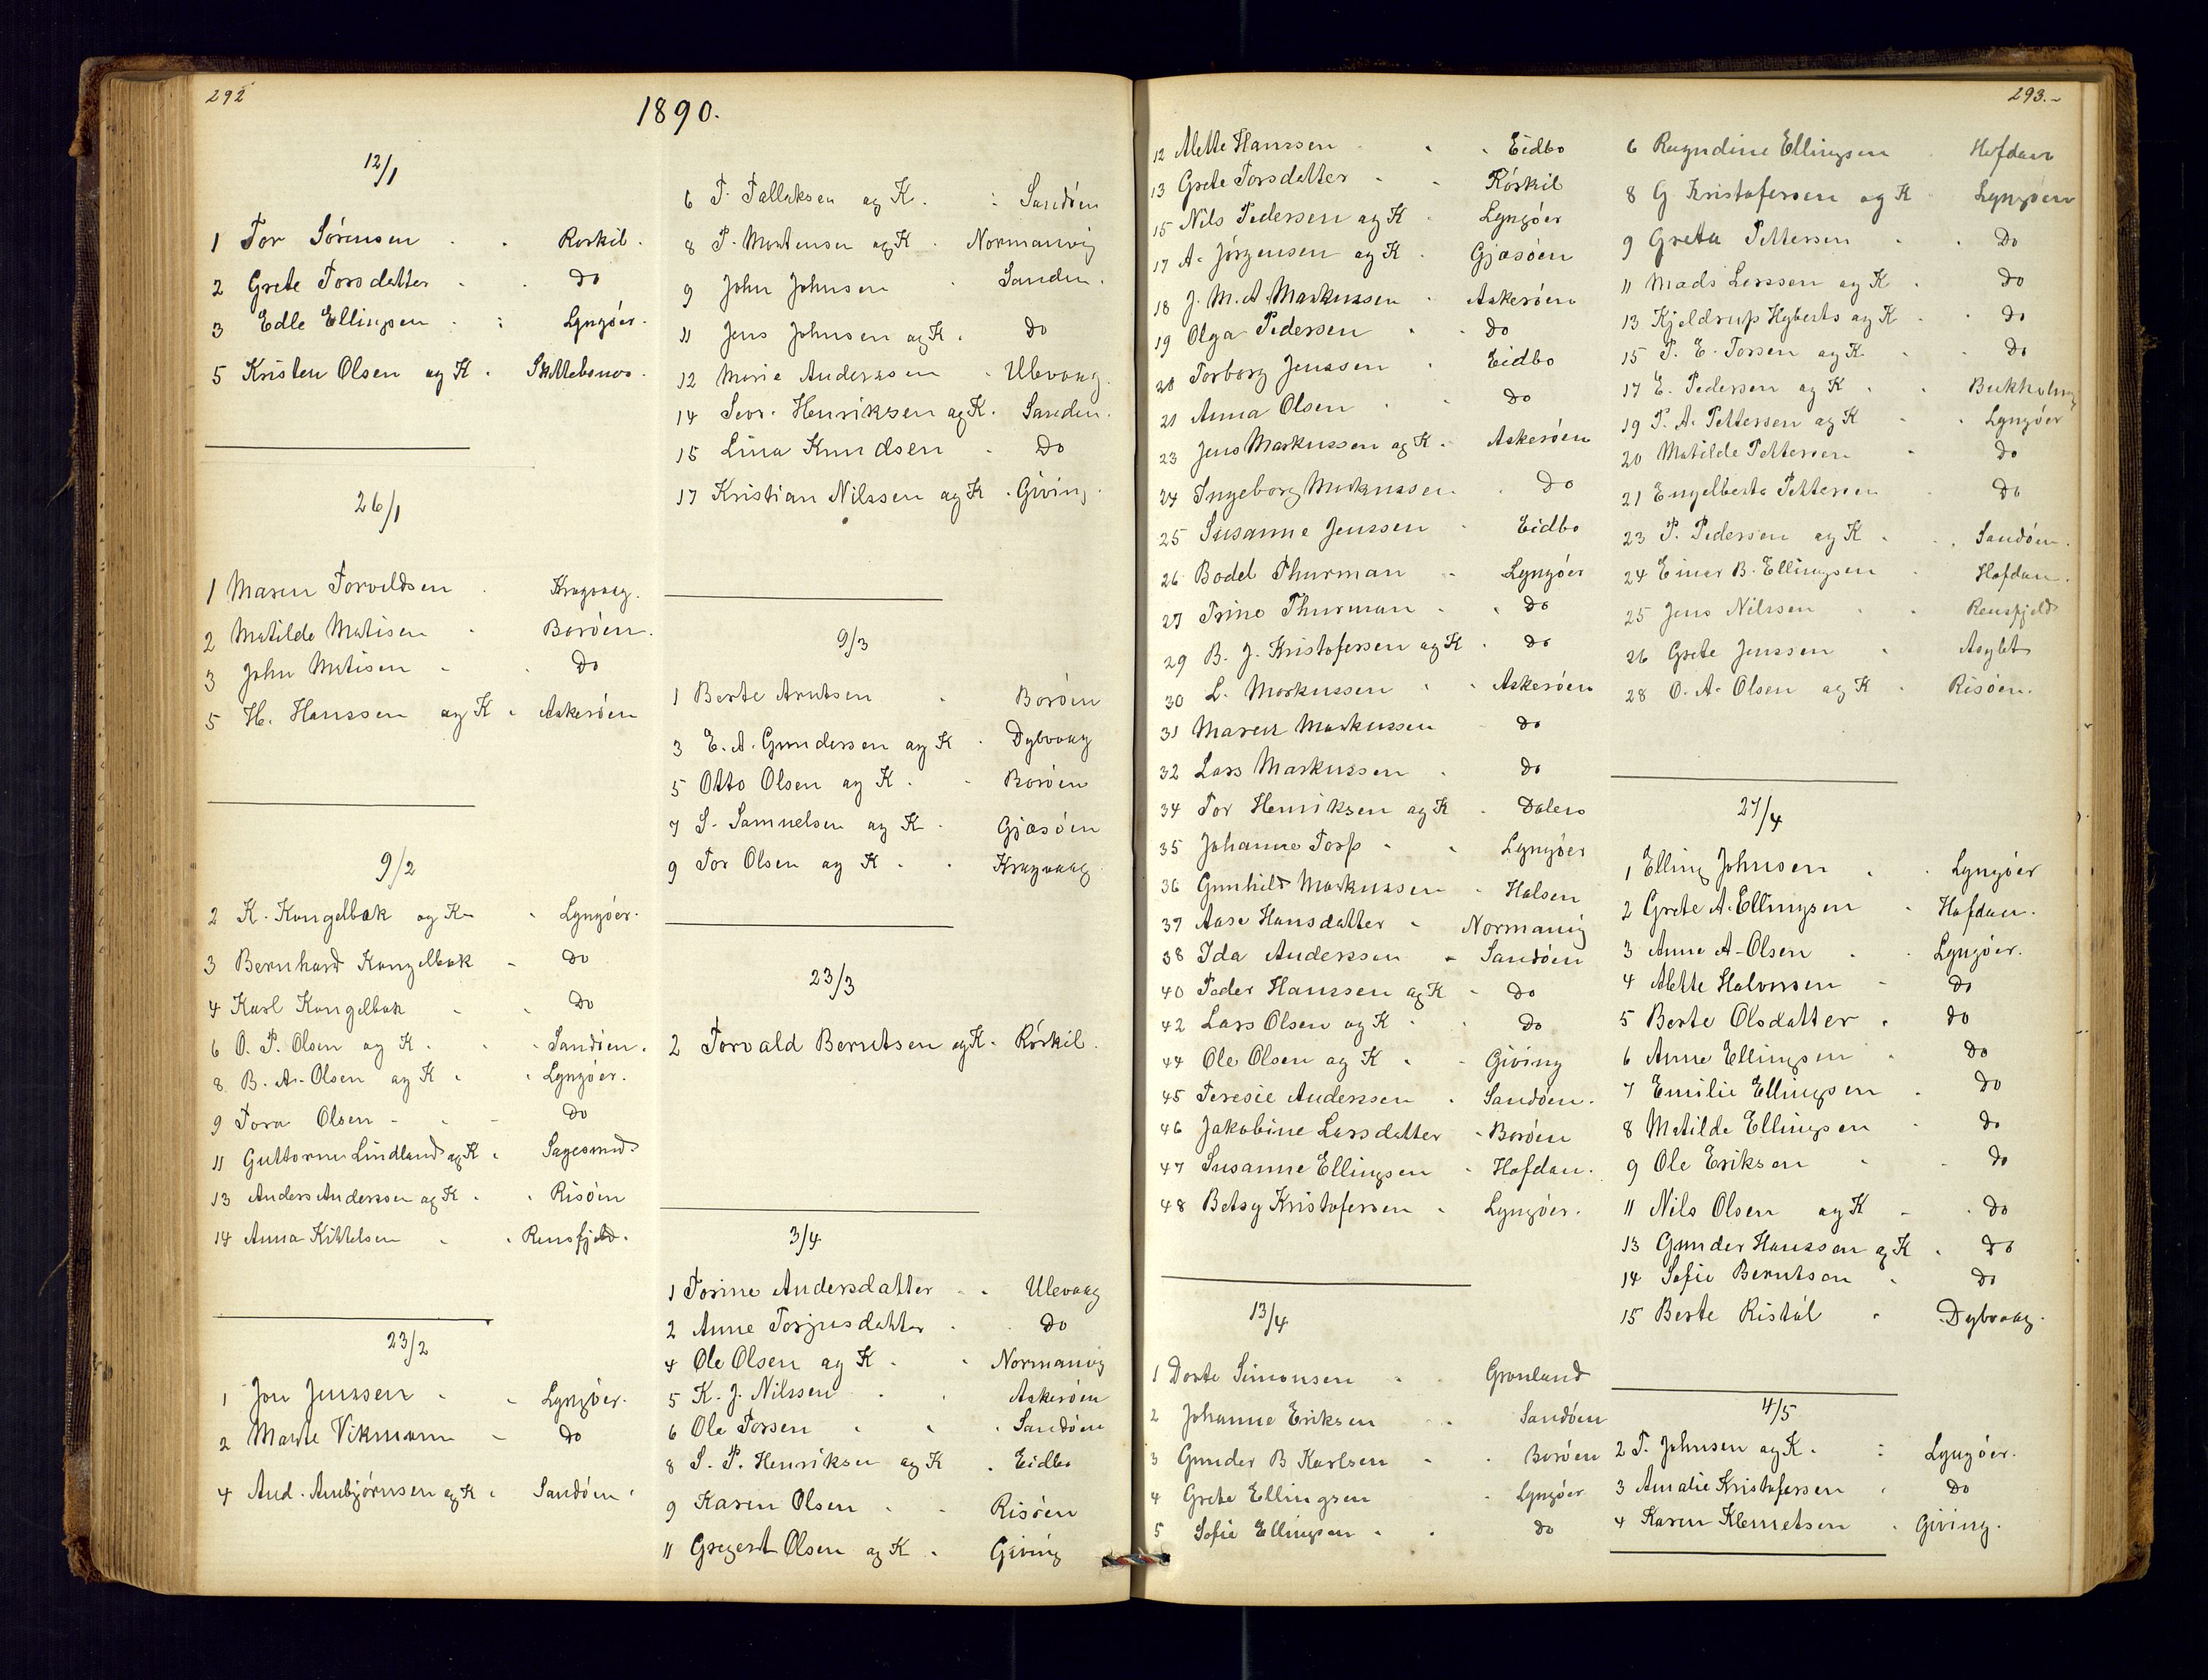 292
1890.
12/1
1 Tor Sörensen . . Rorkil.
2 Grete Torsdatter . . Do
3 Edle Ellingsen . : Lyngöer.
5 Kristen Olsen og K .
26/1
1 Maren Torvildsen . Kragvaag.
2 Matilde Matisen . Boröen.
3 John Matisen . . Do
5 H. Hanssen og K . Askeröen
9/2
2 K. Kongelbak og K . Lyngöer.
3 Bernhard Kongelbak . Do
4 Karl Kongelbak . . Do
6 O. P. Olsen og K . . Sandöen.
8 B. A. Olsen og K . . Lyngöer.
9 Tora Olsen . . . Do
11 Guttorm Lindland og K . Sagesund
13 Anders Anderssen og K . . Risöen
14 Anna Kittelsen . . Rensfjeld.
23/2
1 Jon Jenssen . . Lyngöer.
2 Marte Vikmann . Do
4 And. Anbjörnsen og K . Sandöen.
6 T. Tallaksen og K . : Sandöen
8 P. Mortensen og K . Normanvig
9 John Johnsen . Sanden.
11 Jens Johnsen og K . Do
12 Marie Anderssen . Ulevaag.
14 Sevr. Henriksen og K . Sanden.
15 Lina Knudsen . Do
17 Kristian Nilssen og K . Giving.
9/3
1 Berte Arntsen . Boröen
3 E. A. Gundersen og K . Dybvaag
5 Otto Olsen og K . . Boröen
7 S. Samuelsen og K . Gjæsöen
9 Tor Olsen og K . . Kragvaag
23/3
2 Torvald Berntsen og K . Rörkil.
3/4
1 Torine Andersdatter . . Ulevaag
2 Anne Torjusdatter . Do
4 Ole Olsen og K . . Normanvig
5 K. J. Nilssen . . Askeröen
6 Ole Torsen . . . Sandöen
8 S. P. Henriksen og K . Eidbo
9 Karen Olsen . . Risöen
11 Gregert Olsen og K . Giving
293.-
12 Alette Hanssen . . Eidbo
13 Grete Torsdatter . . Rörkil
15 Nils Pedersen og K . Lyngöer
17 A. Jörgensen og K . Gjæsöen
18 J. M. A. Markussen . Askeröen
19 Olga Pedersen . . Do
20 Torborg Jenssen . Eidbo
21 Anna Olsen . . Do
23 Jens Markussen og K . Askeröen
24 Ingeborg Markussen . Do
25 Susanne Jenssen . Eidbo
26 Bodel Thurman . Lyngöer
27 Trine Thurman . . Do
29 B. J. Kristofersen og K . Do
30 L. Markussen . . Askeröen
31 Maren Markussen Do
32 Lars Markussen . Do
34 Tor Henriksen og K . Dalen
35 Johanne Torp . . Lyngöer
36 Gunhild Markussen . Halsen
37 Aase Hansdatter . Normanvig
38 Ida Anderssen . Sandöen
40 Peder Hanssen og K . Do
42 Lars Olsen og K . . Do
44 Ole Olsen og K . . Giving
45 Teresie Anderssen . Sandöen.
46 Jakobine Larsdatter . Boröen
47 Susanne Ellingsen . Hofdan.
48 Betsy Kristofersen . Lyngöer.
13/4
1 Dorte Simonsen . . Grønland
2 Johanne Eriksen . . Sandöen
3 Gunder B Karlsen . . Boröen
4 Grete Ellingsen . Lyngöer
5 Sofie Ellingsen . . Do
6 Ragndine Ellingsen Hofdan
8 G Kristofersen og K . Lyngöen
9 Greta Pettersen . . Do
11 Mads Larssen og K . Do
13 Kjeldrup Hyberts og K . . Do
15 P. E. Torsen og K . . Do
17 E. Pedersen og K . . Bukholmg
19 P. A. Pettersen og K . . Lyngöer
20 Matilde Pettersen . Do
21 Engelberte Pettersen . Do
23 P. Pedersen og K . . Sandöen.
24 Einar B. Ellingsen . Hofdan.
25 Jens Nilssen . . Rensfjeld
26 Grete Jenssen . Asylet
28 O. A. Olsen og K . Risöen.
27/4
1 Elling Johnsen . . Lyngöer
2 Grete A. Ellingsen . Hofdan.
3 Anne A. Olsen . . Lyngöer.
4 Alette Halvorsen . Do
5 Berte Olsdatter . Do
6 Anne Ellingsen . Do
7 Emilie Ellingsen . Do
8 Matilde Ellingsen . Do
9 Ole Eriksen . . Do
11 Nils Olsen og K . . Do
13 Gunder Hanssen og K . Do
14 Sofie Berntsen . Do
15 Berte Ristöl . Dybvaag.
4/5
2 T. Johnsen og K . : Lyngöer.
3 Amalie Kristofersen . Do
4 Karen Klemetsen . Giving.